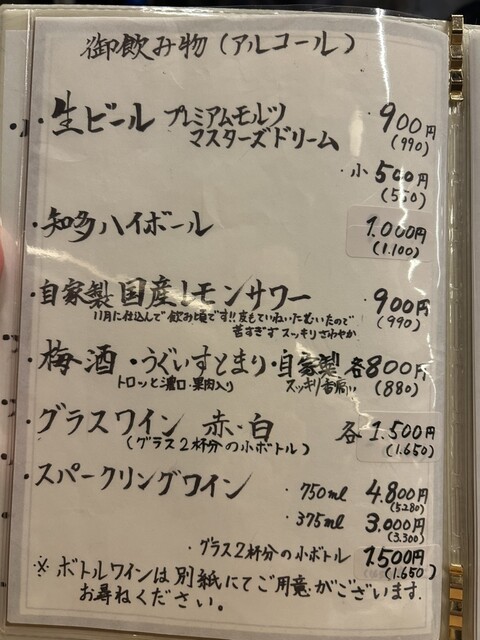 御飲み物(アルコール)
・生ビール プレミアムモルツ マスターズドリーム ・900円
(990)
・小500円
(550)
・知多ハイボール 1.000円
(1.100)
・自家製国産レモンサワー ・900円
(990)
11月に仕込んで飲み頃です!!皮もていねいにむいたので
苦すぎずスッキリさわやか
・梅酒・うぐいすとまり・自家製 各800円
トロッと濃口・果肉入り スッキリ香高い (880)
・グラスワイン 赤・白 各1.500円
(グラス2杯分の小ボトル) (1.650)
・スパークリングワイン
・750ml 4.800円
(5.280)
・375ml 3.000円
(3.300)
・グラス2杯分の小ボトル 1.500円
(1.650)
※ボトルワインは別紙にてご用意がございます.
お尋ねください。